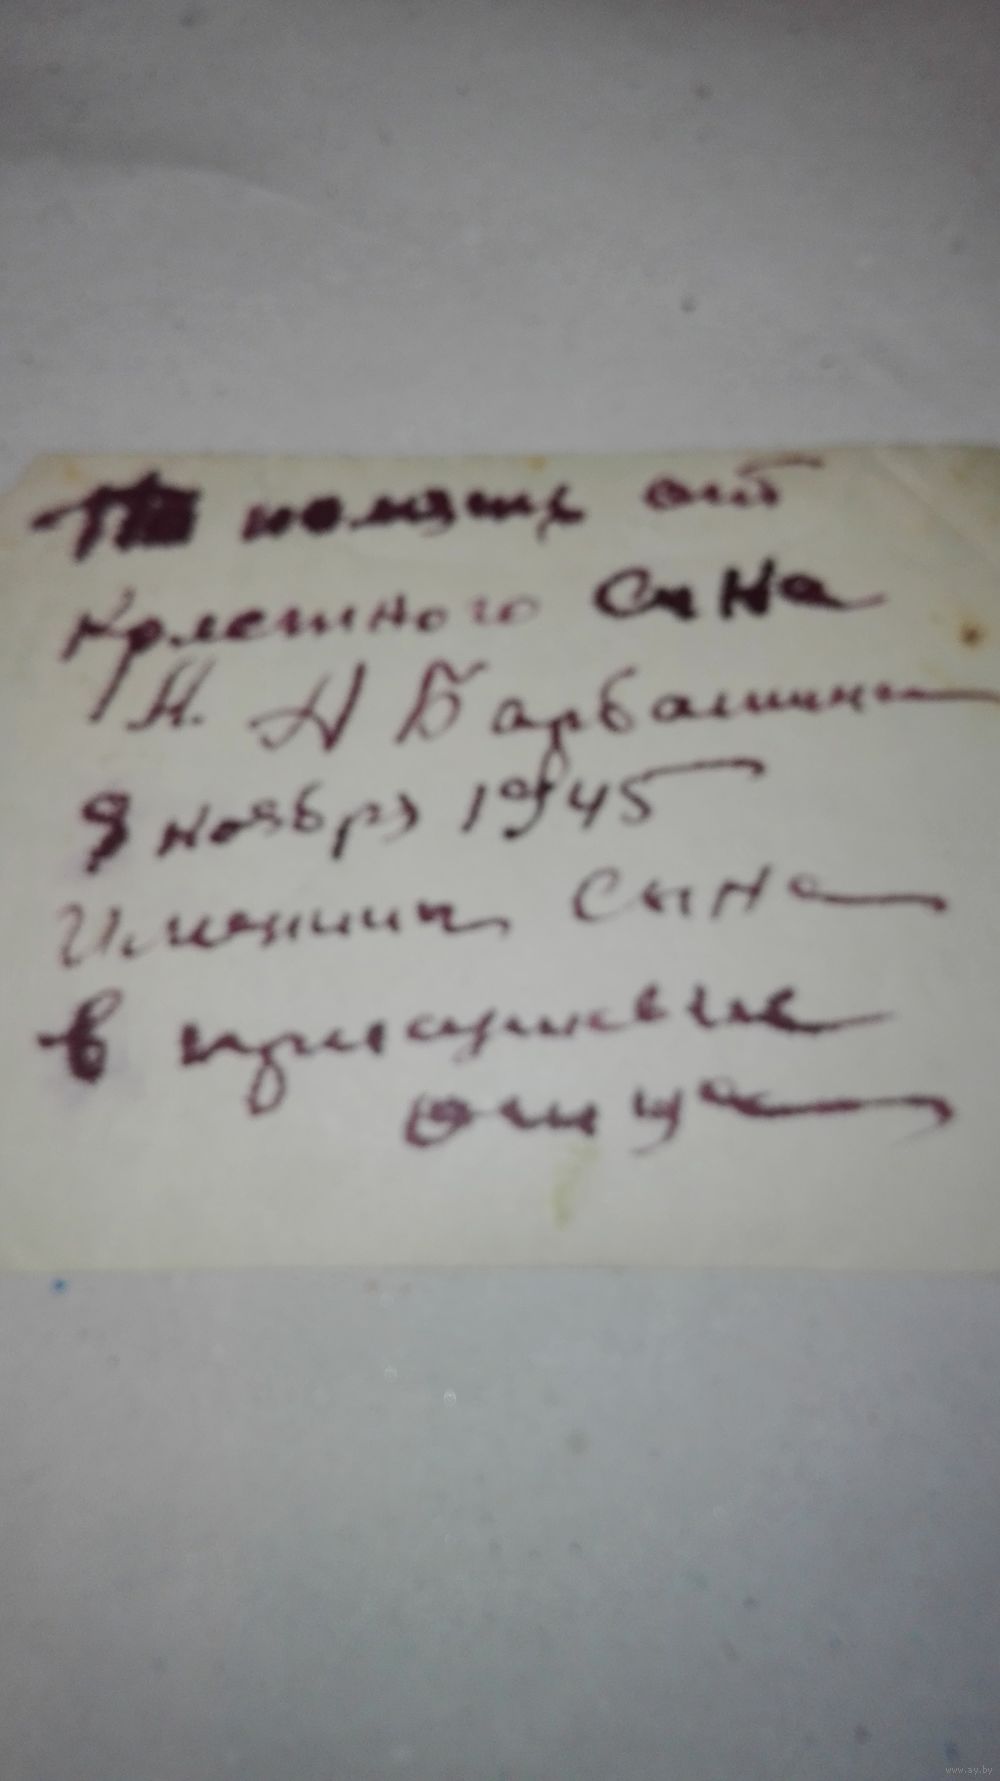 На память от
Крестного сына
Н. Н Барбашина
8 ноября 1945
Именины сына
в присутствие
отца
www.ay.by